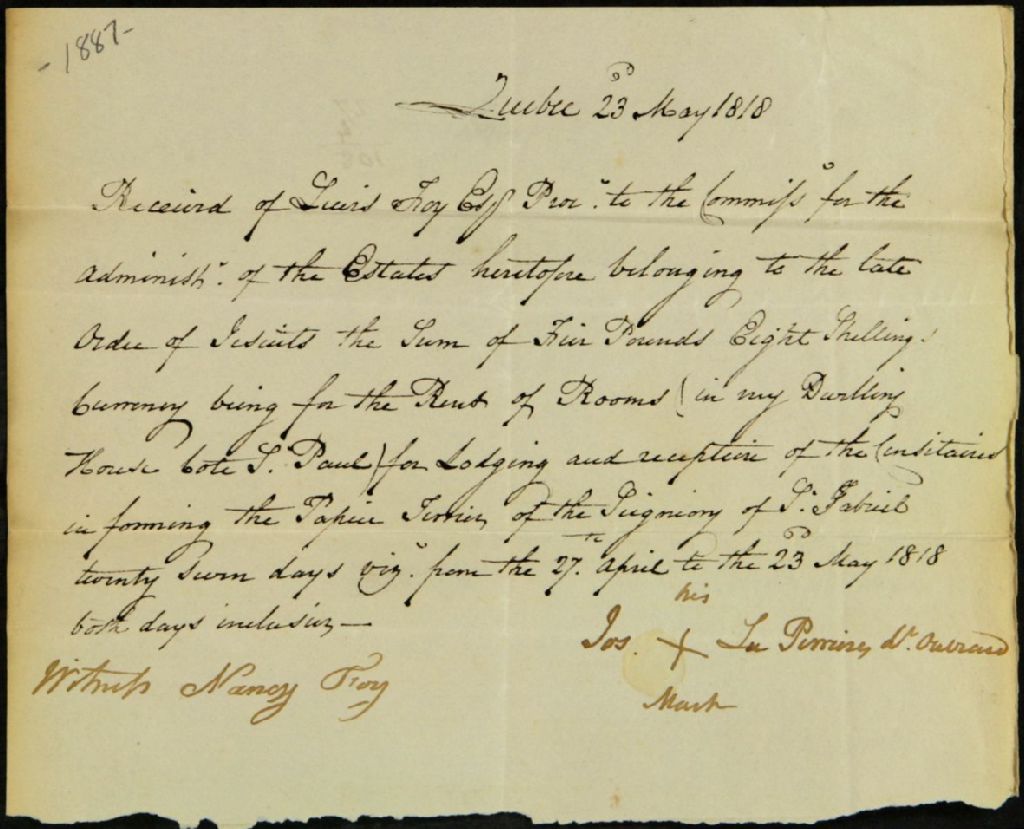 - 1887 -
Quebec 23d May 1818
Received of Lewis Foy Esqr Procr. to the Commisso for the
Administn. of the Estates heretofore belonging to the late
Order of Jesuits the Sum of Five Pounds Eight Shillings
Currency being for the Rent of Rooms (in my Dwelling
House Cote St. Paul) for Lodging and reception of the Censitaires
in forming the Papier Terrier of the Seigniory of St. Gabriel
twenty Seven days vizt. from the 27th. April to the 23d May 1818
both days inclusive —
his
Jos. X La Perriere dt.
Mark
Witness Nancy Foy